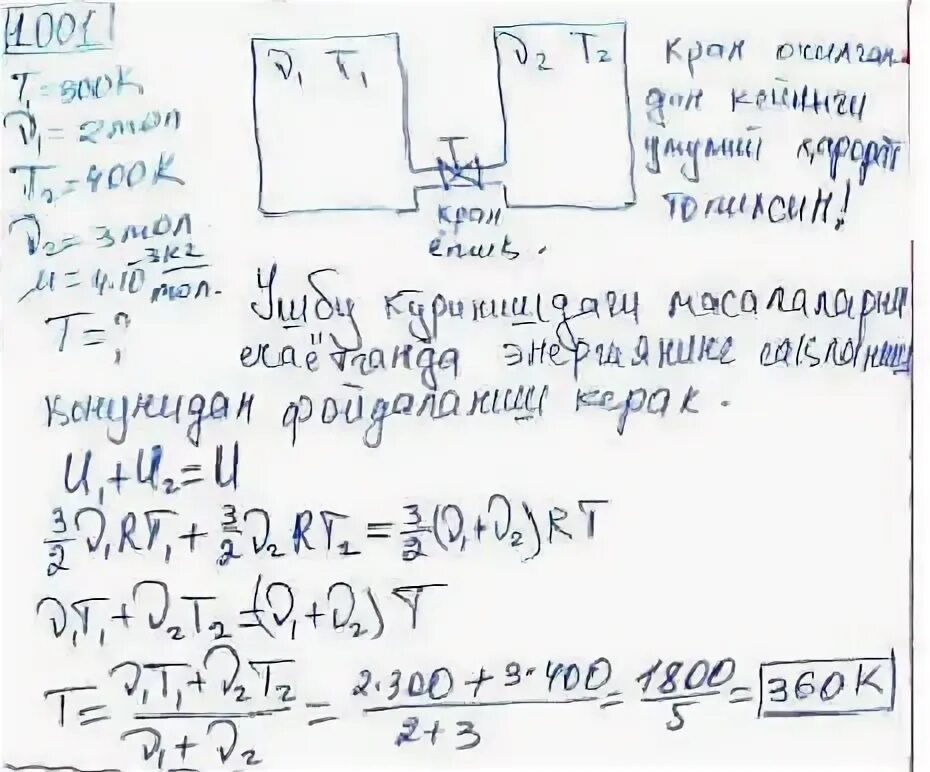 1001
T₁=300K
ν₁=2мол
T₂=400K
ν₂=3мол
μ=4·10⁻³ кг/мол.
T=?
ν₁ T₁
ν₂ T₂
T
кран
ёпик.
Кран очилган
дан кейинги
умумий ҳарорат
топилсин!
Ушбу куринишдаги масалаларни
ечаётганда энергиянинг сақланиш
қонунидан фойдаланиш керак.
U₁+U₂=U
3/2 ν₁RT₁ + 3/2 ν₂RT₂ = 3/2 (ν₁+ν₂)RT
ν₁T₁+ν₂T₂=(ν₁+ν₂)T
T = (ν₁T₁+ν₂T₂)/(ν₁+ν₂) = (2·300+3·400)/(2+3) = 1800/5 = 360K